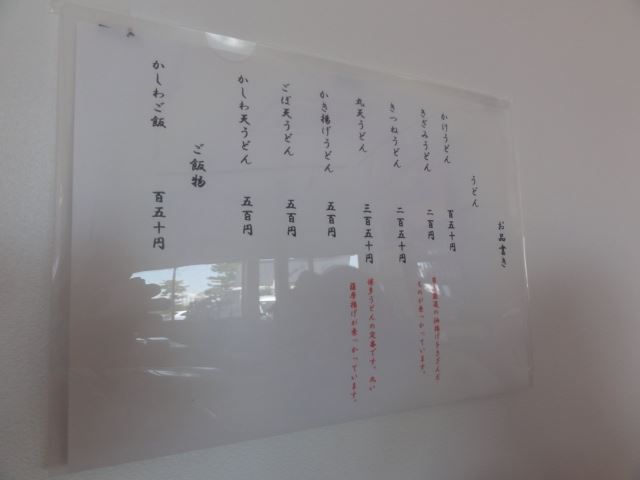 お品書き
うどん
かけうどん 百五十円
きざみうどん 二百円
の油揚げをきざんだ
ものが乗っかっています。
きつねうどん 二百五十円
丸天うどん 三百五十円
博多うどんの定番です。丸い
薩摩揚げが乗っかっています。
かき揚げうどん 五百円
ごぼ天うどん 五百円
かしわ天うどん 五百円
ご飯物
かしわご飯 百五十円